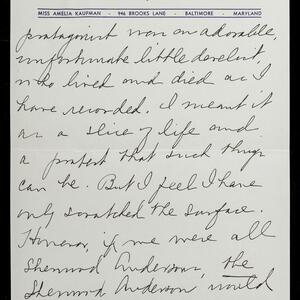 MISS AMELIA KAUFMAN · 946 BROOKS LANE · BALTIMORE · MARYLAND
protagonist was an adorable,
unfortunate little derelict,
who lived and died as I
have recorded. I meant it
as a slice of life and
a protest that such things
can be. But I feel I have
only scratched the surface.
However, if we were all
Sherwood Andersons, the
Sherwood Anderson would